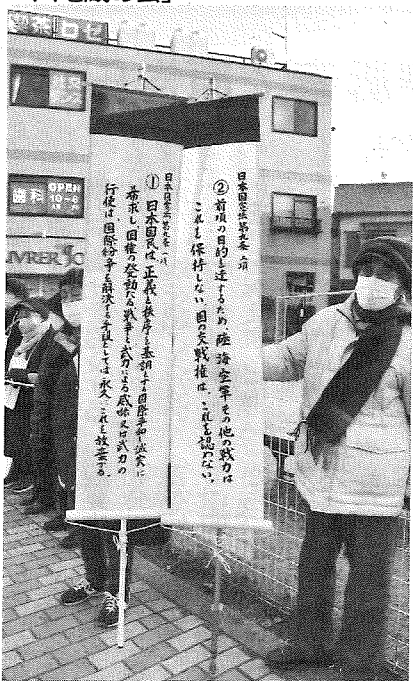 の会」
喫茶ロゼ
歯科
OPEN
日本国憲法第九条 二項
② 前項の目的を達するため、陸海空軍その他の戦力は
これを保持しない。国の交戦権は、これを認めない。
日本国憲法第九条 一項
① 日本国民は、正義と秩序を基調とする国際平和を誠実に
希求し、国権の発動たる戦争と、武力による威嚇又は武力の
行使は、国際紛争を解決する手段としては、永久にこれを放棄する。